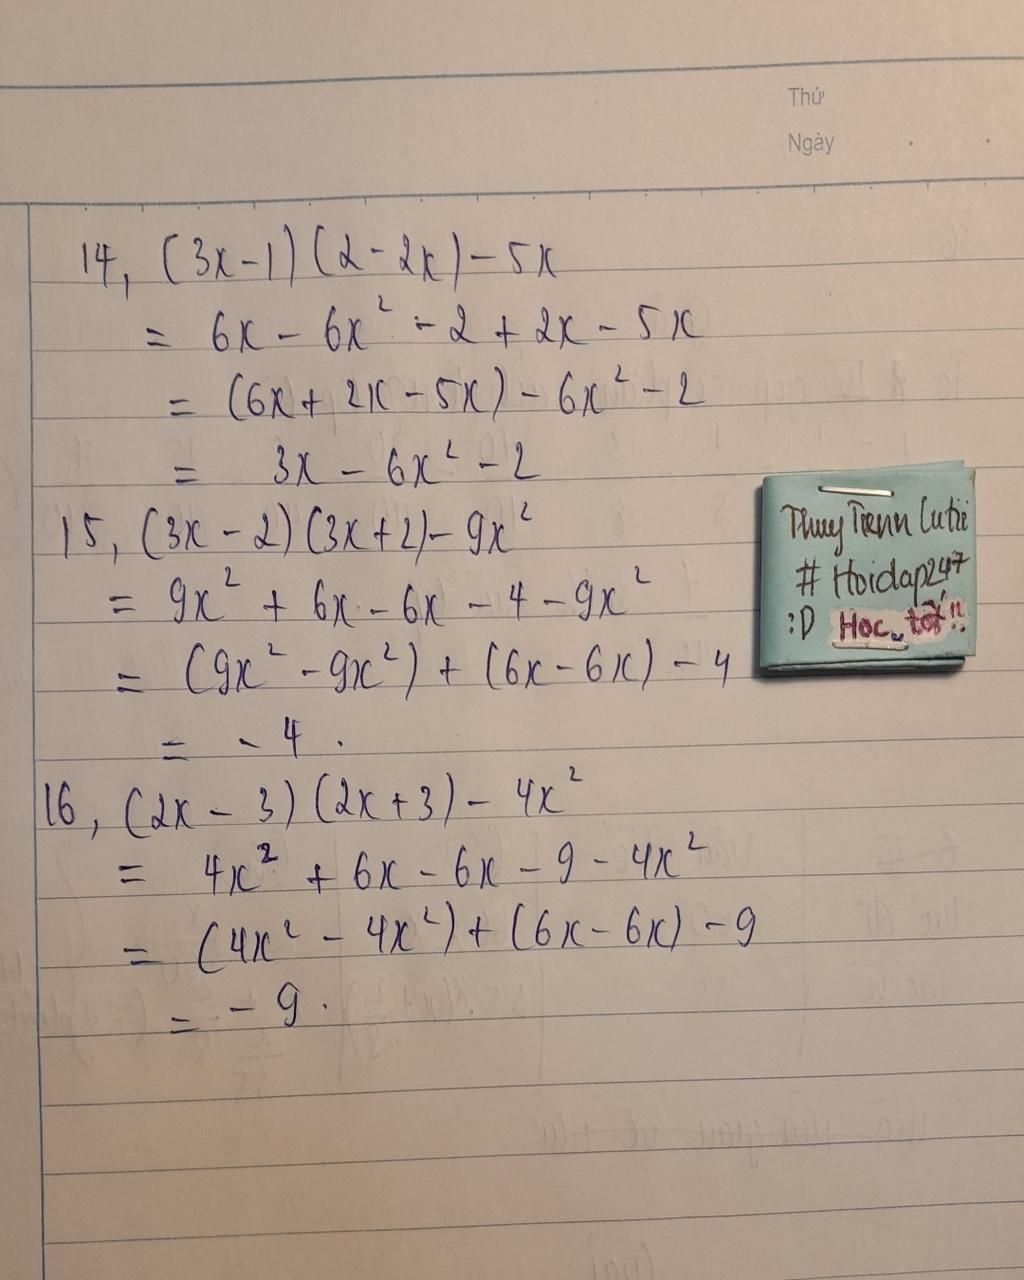 Thứ
Ngày
14, (3x-1)(2-2x)-5x
= 6x - 6x² - 2 + 2x - 5x
= (6x + 2x - 5x) - 6x² - 2
= 3x - 6x² - 2
15, (3x - 2)(3x+2)- 9x²
= 9x² + 6x - 6x - 4 - 9x²
= (9x² - 9x²) + (6x - 6x) - 4
= - 4.
16, (2x - 3)(2x+3) - 4x²
= 4x² + 6x - 6x - 9 - 4x²
= (4x² - 4x²) + (6x - 6x) - 9
= - 9.
Thuy Tienn Cutii
# Hoidap247
:D Học tốt!!